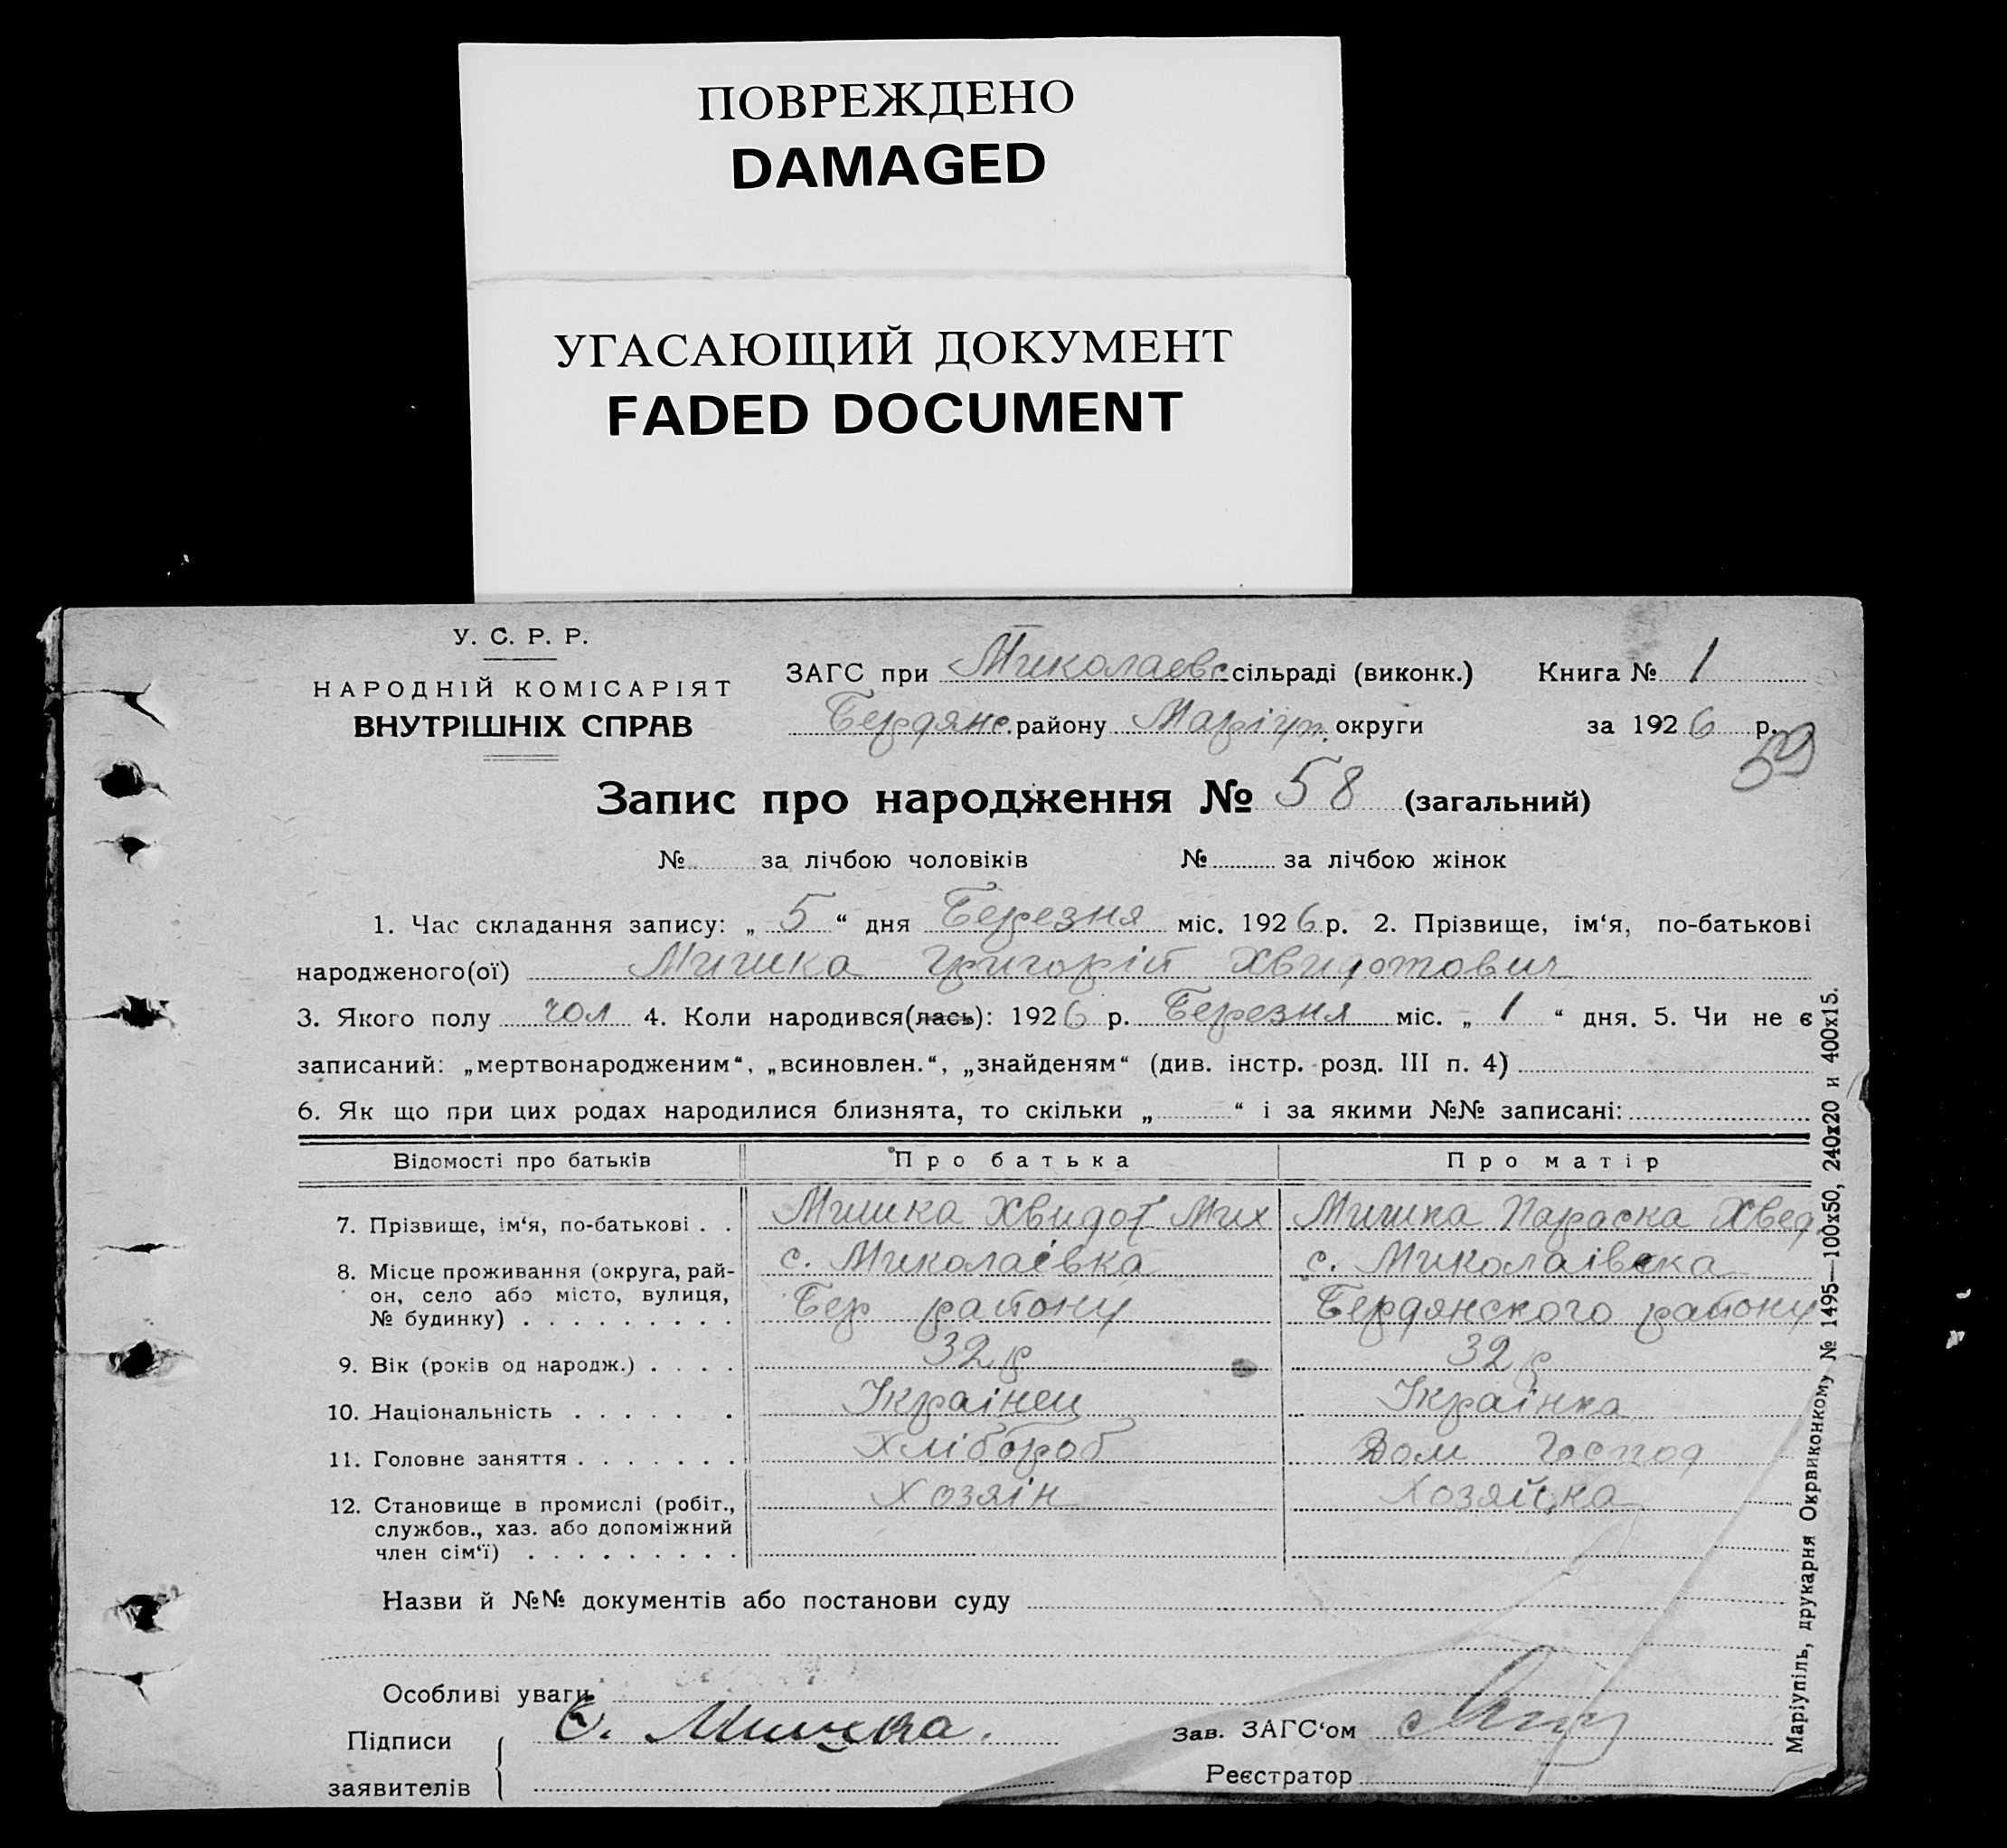 ПОВРЕЖДЕНО
DAMAGED
УГАСАЮЩИЙ ДОКУМЕНТ
FADED DOCUMENT
У. С. Р. Р.
НАРОДНІЙ КОМІСАРІЯТ
ВНУТРІШНІХ СПРАВ
ЗАГС при Миколаевс. сільраді (виконк.) Книга № 1
Бердянс. району Маріуп. округи за 1926 р.
59
Запис про народження № 58 (загальний)
№ за лічбою чоловіків № за лічбою жінок
1. Час складання запису: „ 5 “ дня Березня міс. 1926 р. 2. Прізвище, ім‘я, по-батькові
народженого(ої) Мишка Григорій Хвидотович
3. Якого полу чол 4. Коли народився(лась): 1926 р. Березня міс. „ 1 “ дня. 5. Чи не є
записаний: „мертвонародженим“, „всиновлен.“, „знайденям“ (див. інстр. розд. III п. 4)
6. Як що при цих родах народилися близнята, то скільки „ “ і за якими №№ записані:
Відомості про батьків Про батька Про матір
7. Прізвище, ім‘я, по-батькові . . Мишка Хвидот Мих Мишка Параска Хвед
8. Місце проживання (округа, рай- с. Миколаівка с. Миколаівска
он, село або місто, вулиця,
№ будинку) . . . . . . . . . Бер району Бердянского району
9. Вік (років од народж.) . . . . 32 р 32 р
10. Національність . . . . . . . Украінец Украінка
11. Головне заняття . . . . . . . Хлібороб Дом Господ
12. Становище в промислі (робіт., Хозяін Хозяйка
службов., хаз. або допоміжний
член сім‘ї) . . . . . . . . .
Назви й №№ документів або постанови суду
Особливі уваги
Підписи Мишка. Зав. ЗАГС‘ом
заявителів Реєстратор
Маріупіль, друкарня Окрвиконкому № 1495—100х50, 240х20 и 400х15.